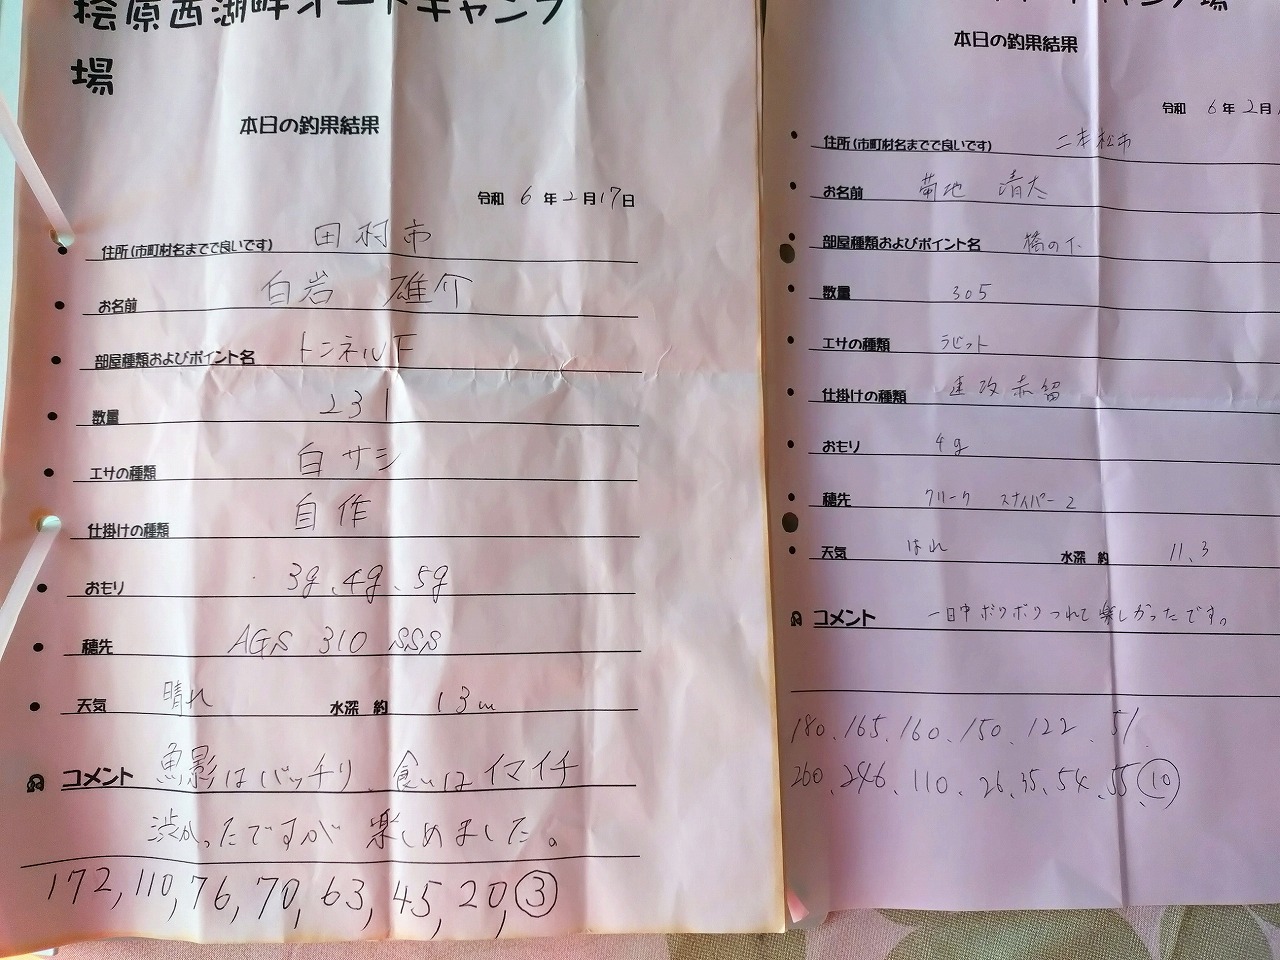 桧原西湖畔オートキャンプ
場
本日の釣果結果
令和 6 年 2 月 17 日
住所(市町村名までで良いです) 田村市
お名前 白岩 雄介
部屋種類およびポイント名 トンネル下
数量 231
エサの種類 白サシ
仕掛けの種類 自作
おもり 3g、4g、5g
穂先 AGS 310 SSS
天気 晴れ 水深 約 13m
コメント 魚影はバッチリ、食いはイマイチ
渋かったですが 楽しめました。
172, 110, 76, 70, 63, 45, 20, ③
場
本日の釣果結果
令和 6 年 2 月
住所(市町村名までで良いです) 二本松市
お名前 菊地 清太
部屋種類およびポイント名 橋の下
数量 305
エサの種類 ラビット
仕掛けの種類 速攻赤留
おもり 4g
穂先 クリーク スナイパー2
天気 はれ 水深 約 11.3
コメント 一日中ポツポツつれて楽しかったです。
180、165、160、150、122、51
260、246、110、26、35、54、55、⑩